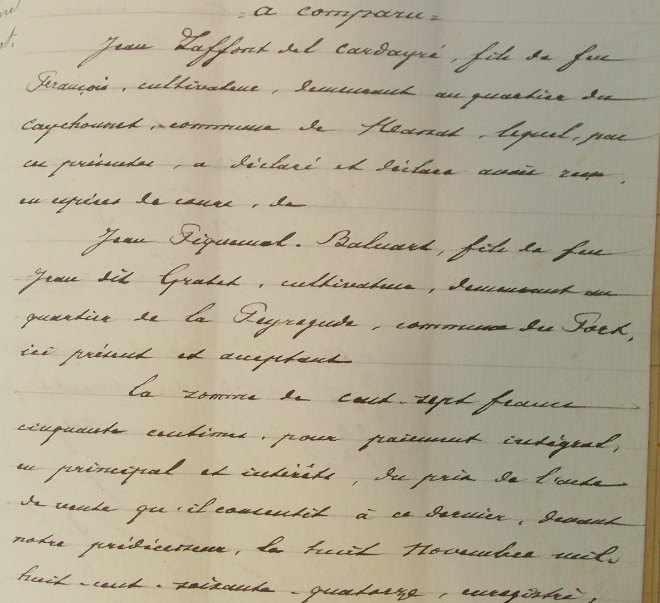 = a comparu =
Jean Laffont del Cardayré, fils de feu
François, cultivateur, demeurant au quartier du
commune de lequel, par
ces présentes, a déclaré et déclare avoir reçu,
en espèces de cours, de
Jean Piquemal-Baluart, fils de feu
Jean dit Gratet, cultivateur, demeurant au
quartier de la Peyregude, commune du Port,
ici présent et acceptant
la somme de cent-sept francs
cinquante centimes, pour paiement intégral,
en principal et intérêts, du prix de l'acte
de vente qu'il consentit à ce dernier, devant
notre prédécesseur, le huit Novembre mil-
huit-cent-soixante-quatorze, enregistré,